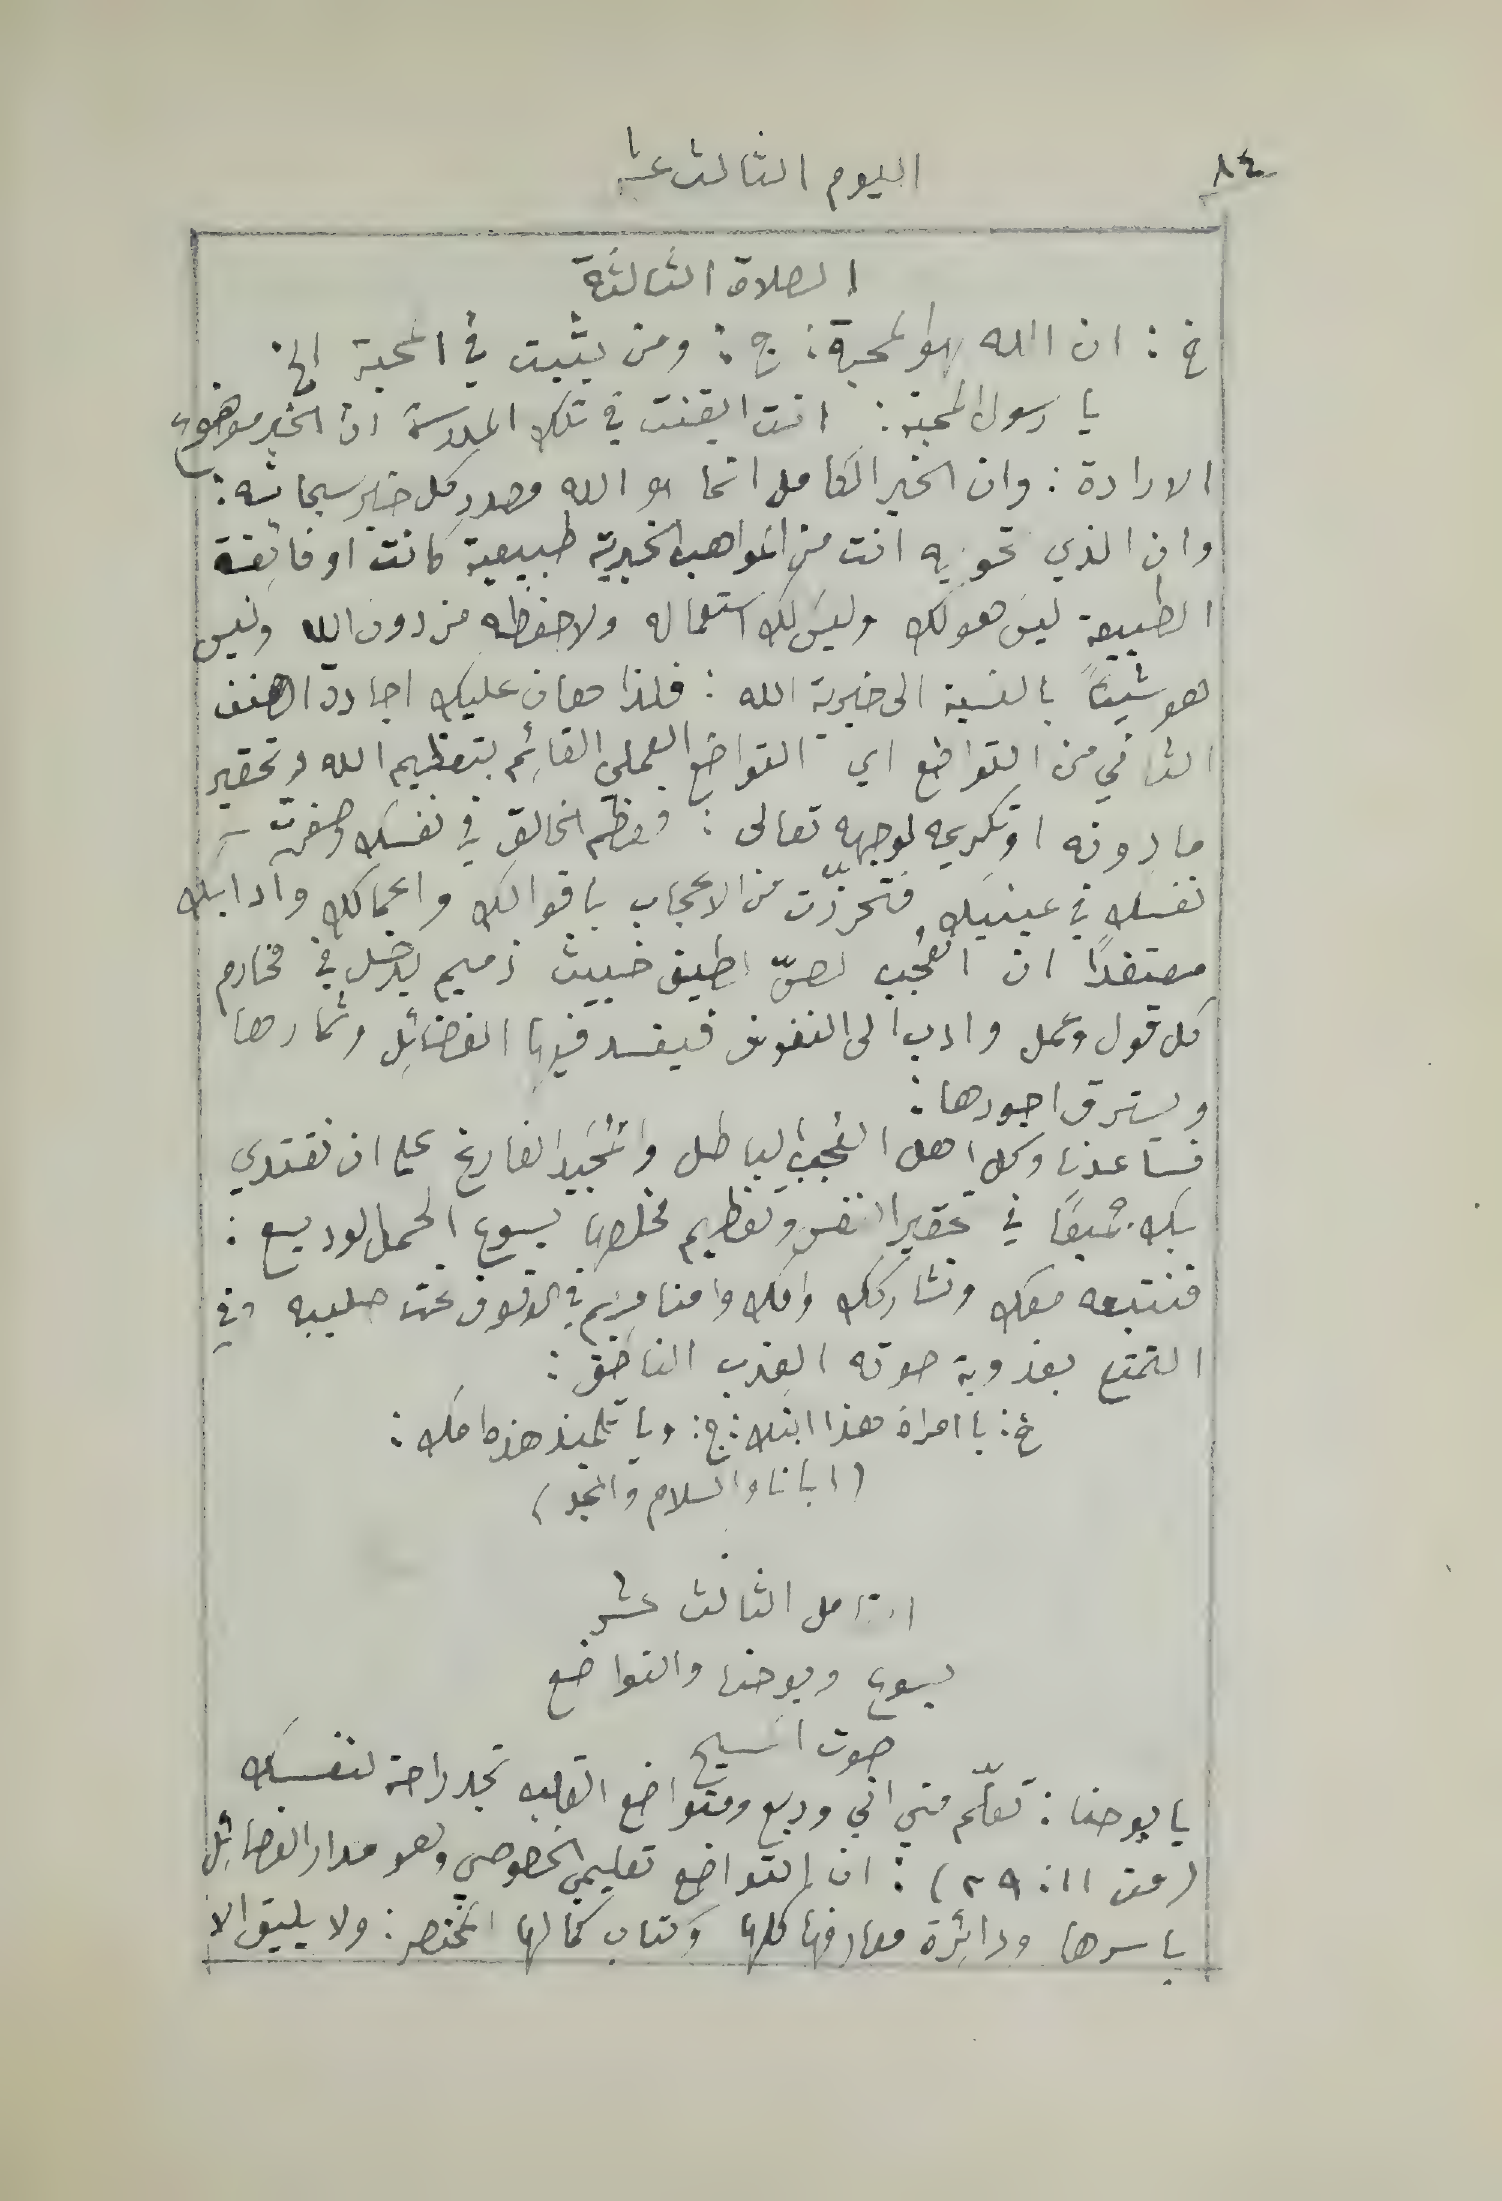 ٨٤
اليوم الثالث عشر
الصلاة الثالثة
خ : ان الله هو المحبة : ج : ومن يثبت في المحبة الخ
يا رسول المحبة : انت ايقنت في تلك المدرسة ان الخير موضوع
الارادة : وان الخير الكامل انما هو الله مصدر كل خير سبحانه :
وان الذي تحويه انت من المواهب الخيرية طبيعية كانت او فائقة
الطبيعة ليس هو لك وليس لك استعماله ولا حفظه من دون الله وليس
هو شيئًا بالنسبة الى خيرية الله : فلذا هان عليك اجادة الصنف
الثاني من التواضع اي التواضع العملي القائم بتعظيم الله وتحقير
ما دونه او تكريمه لوجهه تعالى : فعظم الخالق في نفسك وصغرت
نفسك في عينيك فتحرّزت من الاعجاب باقوالك واعمالك وادابك
معتقدًا ان العُجب لصّ لطيف خبيث ذميم يدخل في مخارم
كل قول وعمل وادب الى النفوس فيفسد فيها الفضائل وثمارها
ويسترق اجورها :
فساعدنا وكل اهل العُجب الباطل والمجد الفارغ على ان نقتدي
بك في تحقير النفس وتعظيم مخلصها يسوع الحمل الوديع :
فنتبعه معك ونشاركك وامك وامنا مريم في الوقوف تحت صليبه وفي
التمتع بعذوبة صوته العذب الناطق :
خ : يا امراة هذا ابنك : ج : ويا تلميذ هذه امك :
(ابانا والسلام والمجد)
التامل الثالث عشر
يسوع ويوحنا والتواضع
صوت المسيح
يا يوحنا : تعلّم مني اني وديع ومتواضع القلب تجد راحة لنفسك
(متى ١١ : ٢٩) : ان التواضع تعليمي الخصوصي وهو مدار الفضائل
باسرها ودائرة معارفها كلها وكتاب كمالها المختصر : ولا يليق الا